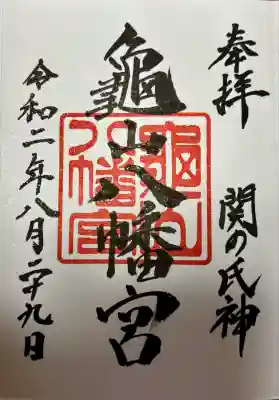 奉拝
関の氏神
龜山八幡宮
龜山八幡宮
令和二年八月二十九日